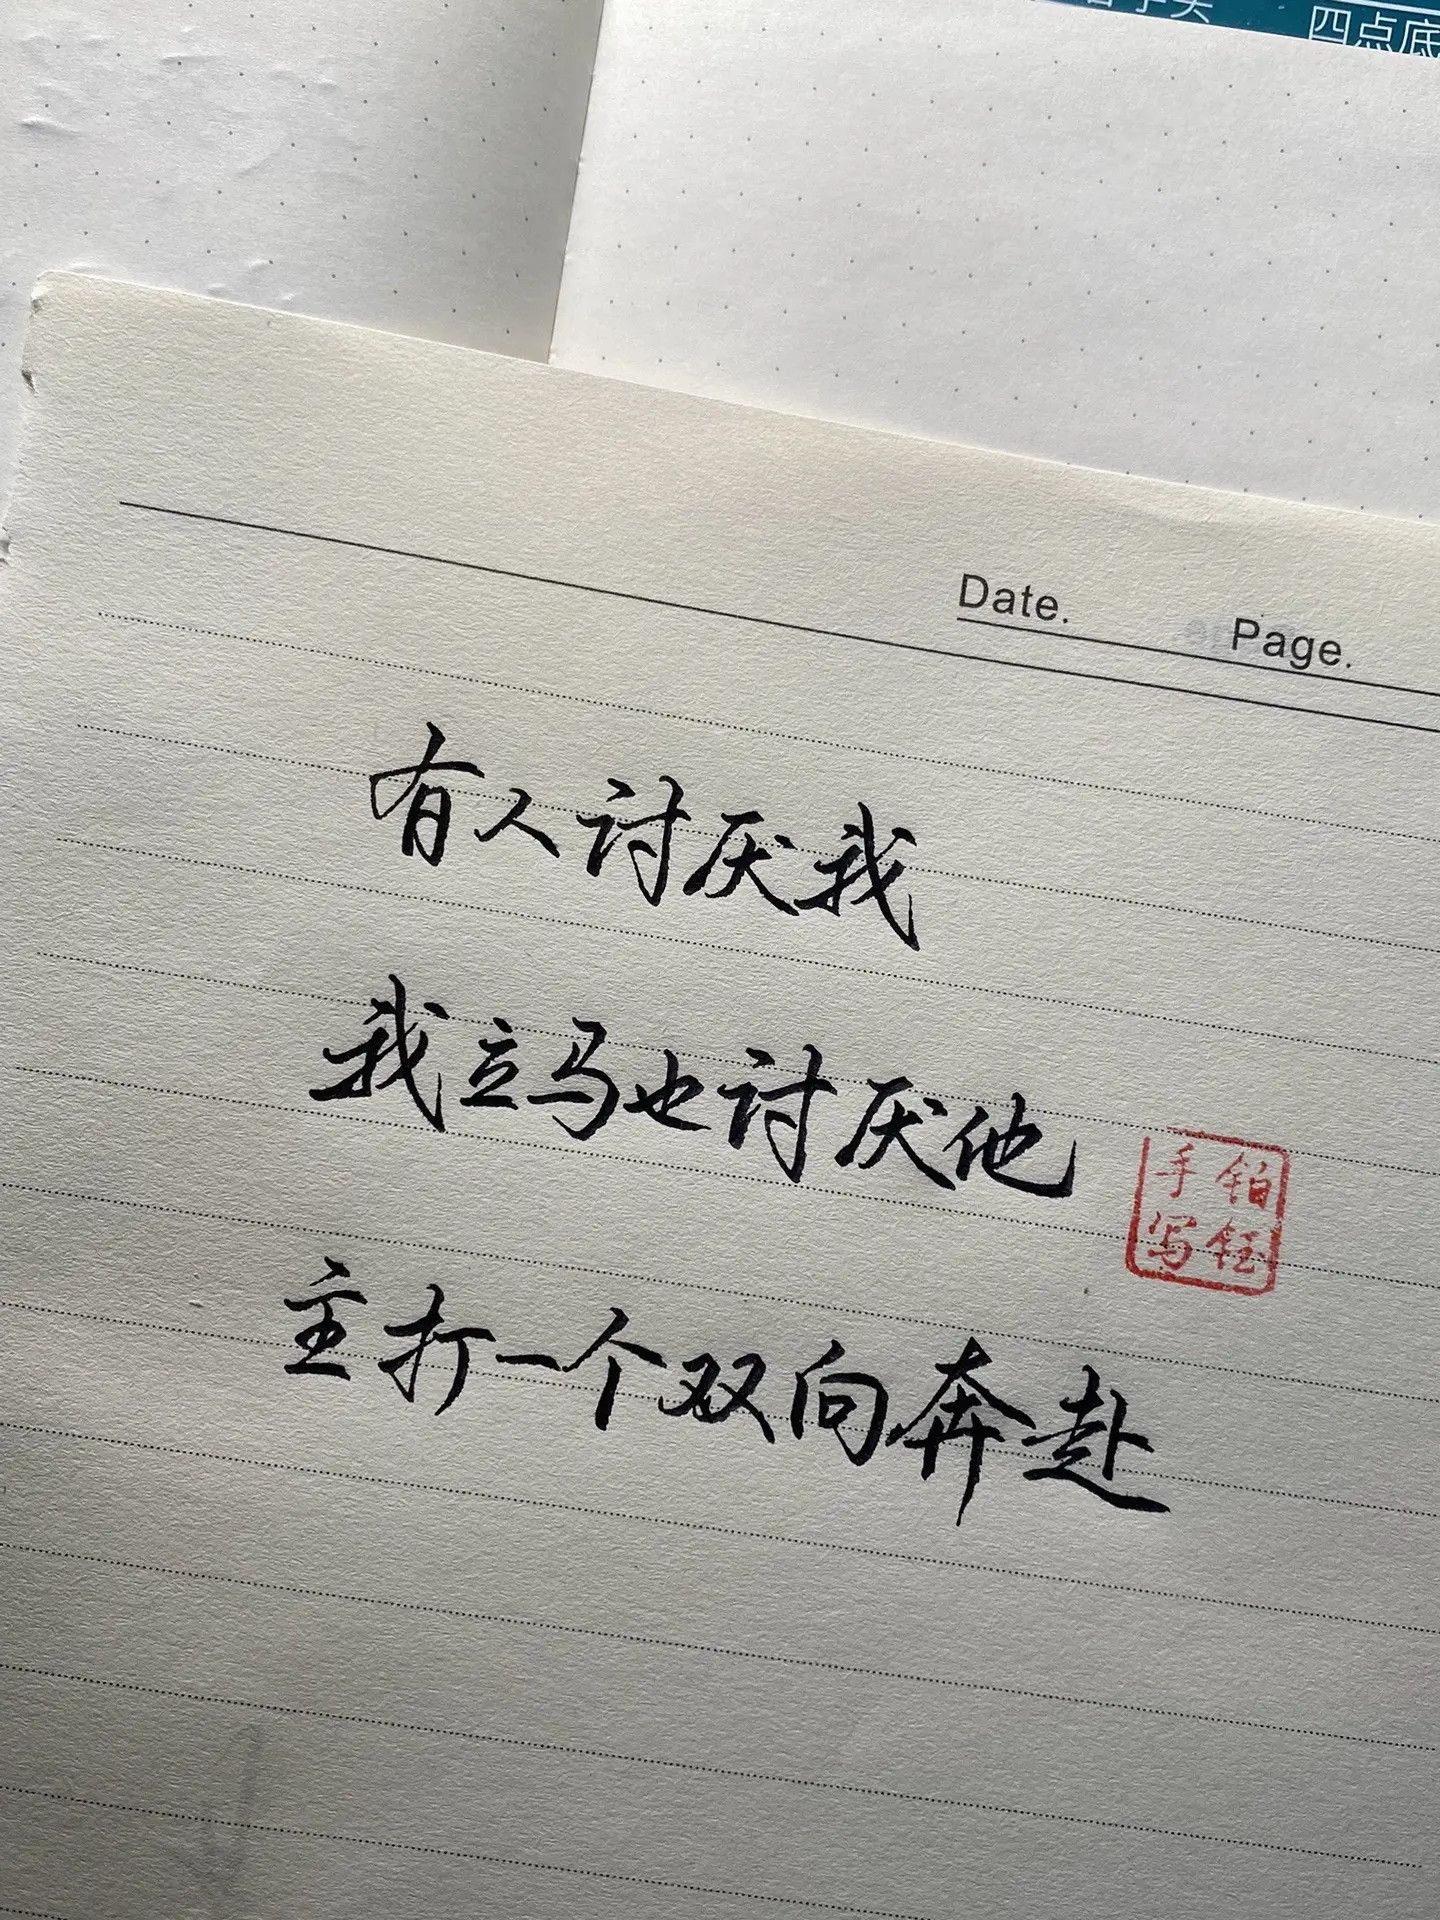 四点底
Date.
Page.
有人讨厌我
我立马也讨厌他
主打一个双向奔赴
铂钰
手写